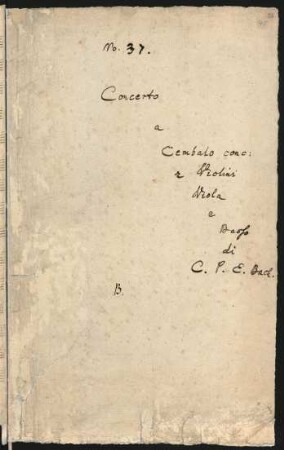 No. 37.
Concerto
a
Cembalo conc:
2 Violini
Viola
e
Basso
di
C. P. E. Bach.
B.